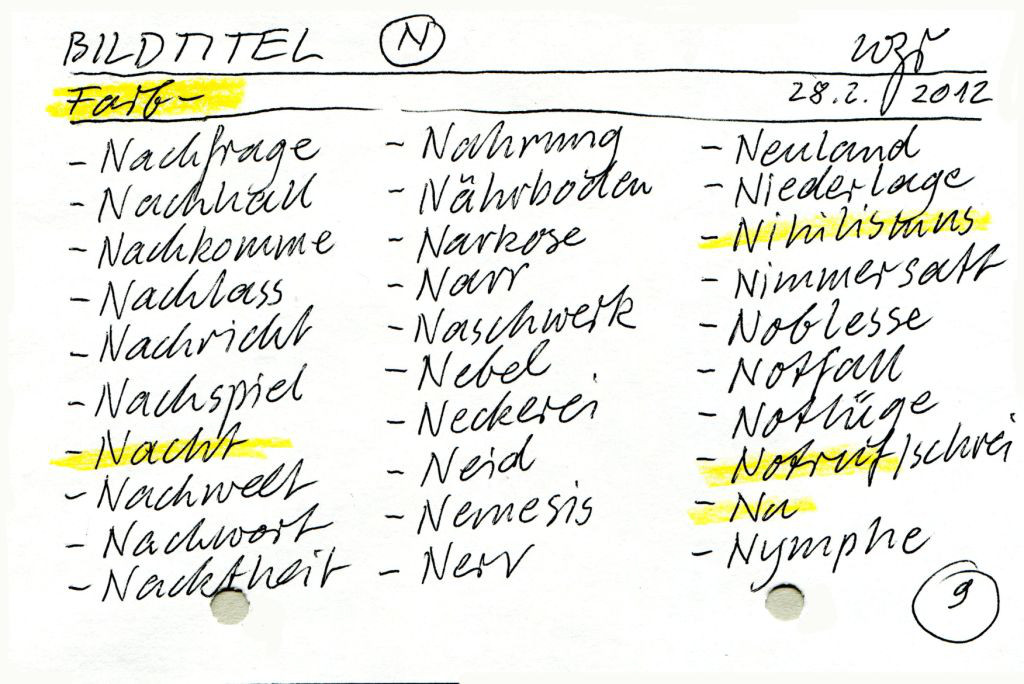 BILDTITEL N
Farb- 28.2.2012
- Nachfrage
- Nachhall
- Nachkomme
- Nachlass
- Nachricht
- Nachspiel
- Nacht
- Nachwelt
- Nachwort
- Nacktheit
- Nahrung
- Nährboden
- Narkose
- Narr
- Naschwerk
- Nebel
- Neckerei
- Neid
- Nemesis
- Nerv
- Neuland
- Niederlage
- Nihilismus
- Nimmersatt
- Noblesse
- Notfall
- Notlüge
- Notruf/schrei
- Nu
- Nymphe
9